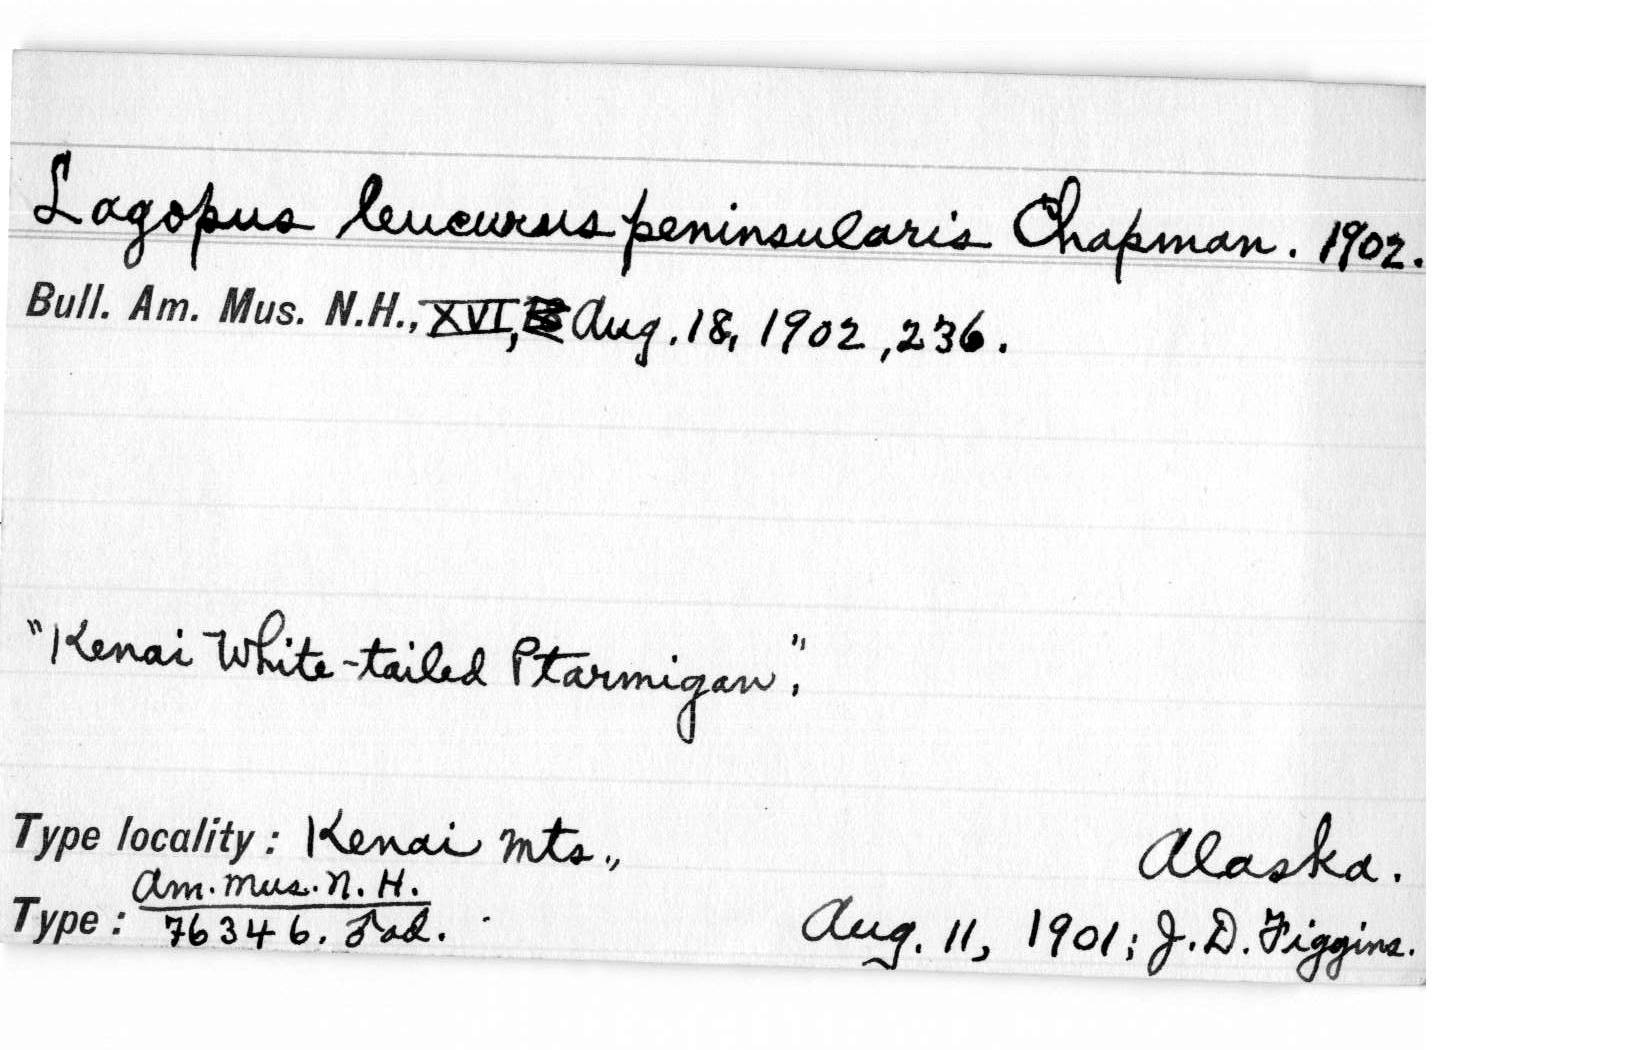 Lagopus leucurus peninsularis Chapman. 1902.
Bull. Am. Mus. N.H., XVI, Aug. 18, 1902, 236.
"Kenai White-tailed Ptarmigan".
Type locality: Kenai Mts., Alaska.
Am. Mus. N. H.
Type: 76346. ♂ ad. Aug. 11, 1901; J. D. Figgins.